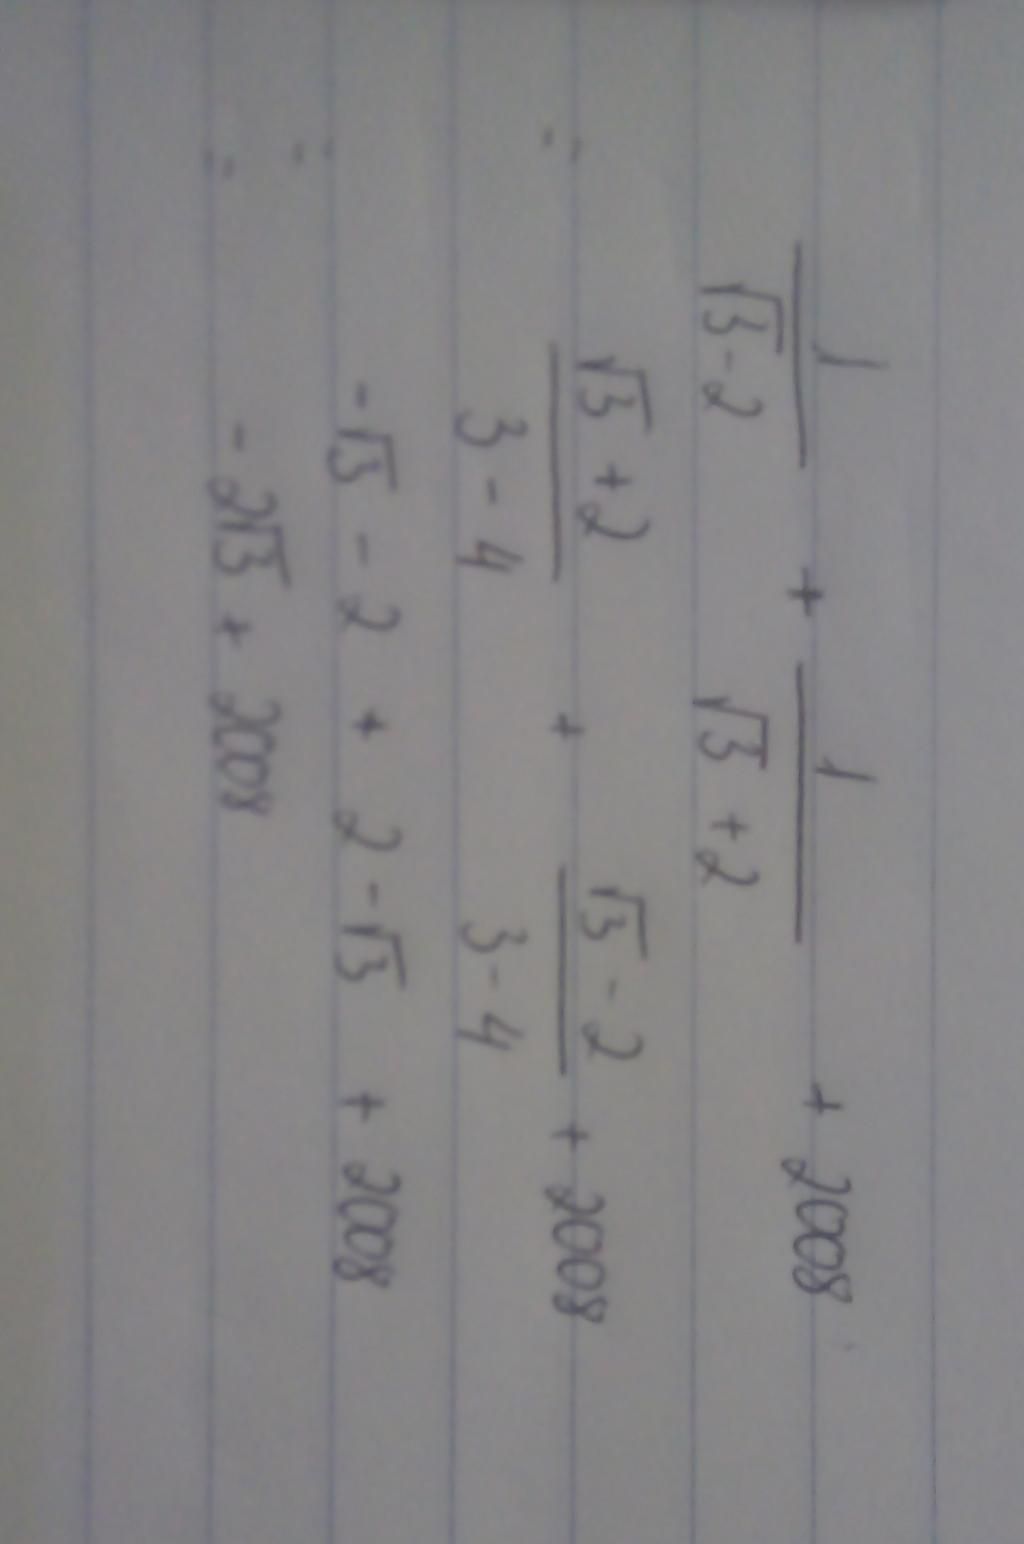 1/(√3-2) + 1/(√3+2) + 2008
= (√3+2)/(3-4) + (√3-2)/(3-4) + 2008
= -√3 - 2 + 2 - √3 + 2008
= -2√3 + 2008